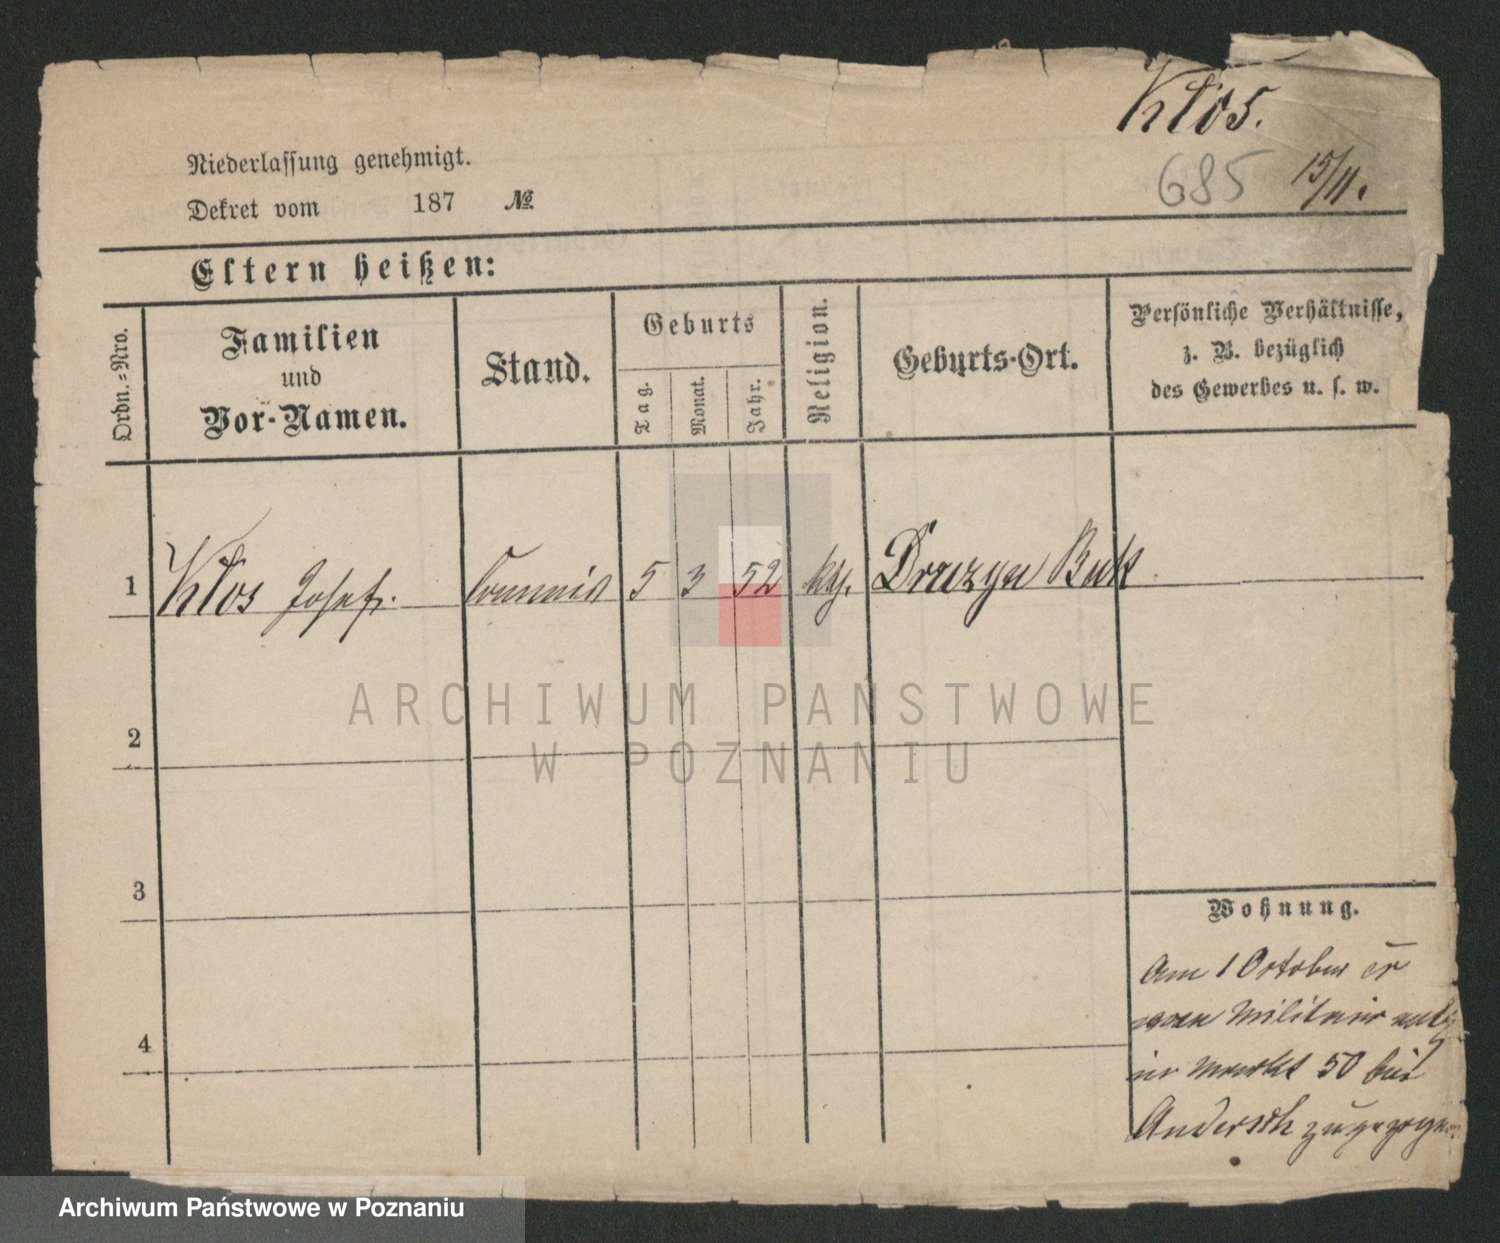 Kłos.
685 15/11.
Niederlassung genehmigt.
Dekret vom 187 №
Eltern heißen:
Ordn.=Nro.
Familien
und
Vor-Namen.
Stand.
Geburts
Tag.
Monat.
Jahr.
Religion.
Geburts-Ort.
Persönliche Verhältnisse,
z. B. bezüglich
des Gewerbes u. s. w.
1 Kłos Josef. Commis 5 3 52 kth. Druzyn Buk
ARCHIWUM PAŃSTWOWE
W POZNANIU
2
3
4
Wohnung.
Am 1 October cr
Militair
Markt 50 bei
Andersch zugezogen.
Archiwum Państwowe w Poznaniu